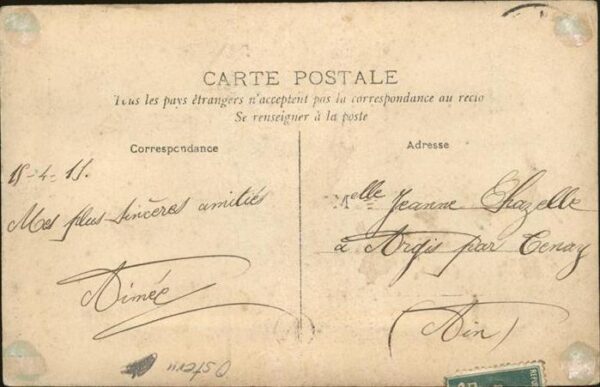 CARTE POSTALE
Tous les pays étrangers n'acceptent pas la correspondance au recto
Se renseigner à la poste
Correspondance
15-4-11.
Mes plus sincères amitiés
Aimée
Adresse
Melle Jeanne Chazelle
à Argis par Tenay
(Ain)